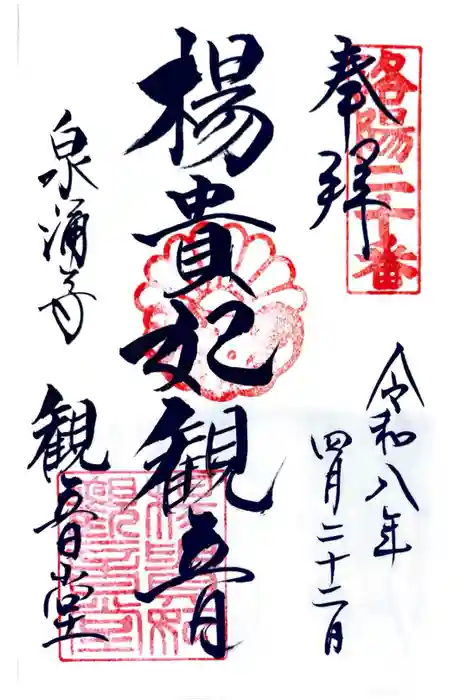 奉拝
洛陽二十番
令和八年
四月二十二日
楊貴妃観音
泉涌寺
観音堂